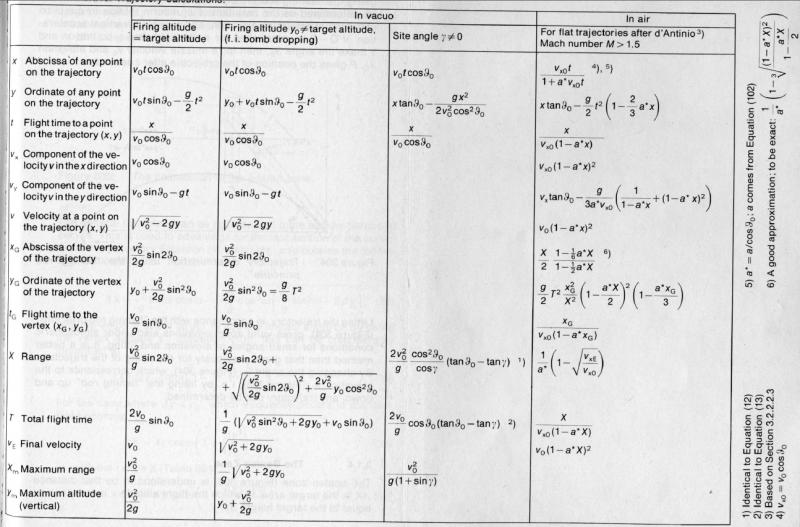 In vacuo
In air
Firing altitude
= target altitude
Firing altitude y₀ ≠ target altitude,
(f. i. bomb dropping)
Site angle γ ≠ 0
For flat trajectories after d'Antinio ³)
Mach number M > 1.5
x Abscissa of any point
on the trajectory
v₀t cosϑ₀
v₀t cosϑ₀
v₀t cosϑ₀
vₓ₀t / (1 + a*vₓ₀t) ⁴), ⁵)
y Ordinate of any point
on the trajectory
v₀t sinϑ₀ − (g/2)t²
y₀ + v₀t sinϑ₀ − (g/2)t²
x tanϑ₀ − gx² / (2v₀² cos²ϑ₀)
x tanϑ₀ − (g/2)t² (1 − (2/3)a*x)
t Flight time to a point
on the trajectory (x, y)
x / (v₀ cosϑ₀)
x / (v₀ cosϑ₀)
x / (v₀ cosϑ₀)
x / (vₓ₀(1−a*x))
vₓ Component of the ve-
locity v in the x direction
v₀ cosϑ₀
v₀ cosϑ₀
vₓ₀(1−a*x)²
v_y Component of the ve-
locity v in the y direction
v₀ sinϑ₀ − gt
v₀ sinϑ₀ − gt
vₓ tanϑ₀ − g/(3a*vₓ₀) (1/(1−a*x) + (1−a*x)²)
v Velocity at a point on
the trajectory (x, y)
√(v₀² − 2gy)
√(v₀² − 2gy)
v₀(1−a*x)²
x_G Abscissa of the vertex
of the trajectory
(v₀²/2g) sin2ϑ₀
(v₀²/2g) sin2ϑ₀
(X/2) (1−⅙a*X)/(1−½a*X) ⁶)
y_G Ordinate of the vertex
of the trajectory
y₀ + (v₀²/2g) sin²ϑ₀
(v₀²/2g) sin²ϑ₀ = (g/8) T²
(g/2) T² (x_G²/X²) (1 − a*X/2)² (1 − a*x_G/3)
t_G Flight time to the
vertex (x_G, y_G)
(v₀/g) sinϑ₀
(v₀/g) sinϑ₀
x_G / (vₓ₀(1−a*x_G))
X Range
(v₀²/g) sin2ϑ₀
(v₀²/2g) sin2ϑ₀ +
+ √((v₀²/2g sin2ϑ₀)² + (2v₀²/g) y₀ cos²ϑ₀)
(2v₀²/g) (cos²ϑ₀/cosγ) (tanϑ₀ − tanγ) ¹)
(1/a*) (1 − √(v_xE/vₓ₀))
T Total flight time
(2v₀/g) sinϑ₀
(1/g) (√(v₀² sin²ϑ₀ + 2gy₀) + v₀ sinϑ₀)
(2v₀/g) cosϑ₀(tanϑ₀ − tanγ) ²)
X / (vₓ₀(1−a*X))
v_E Final velocity
v₀
√(v₀² + 2gy₀)
v₀(1−a*X)²
X_m Maximum range
v₀²/g
(v₀/g) √(v₀² + 2gy₀)
v₀² / (g(1+sinγ))
Y_m Maximum altitude
(vertical)
v₀²/2g
y₀ + v₀²/2g
1) Identical to Equation (12)
2) Identical to Equation (13)
3) Based on Section 3.2.2.2.3
4) vₓ₀ = v₀ cosϑ₀
5) a* = a/cosϑ₀; a comes from Equation (102)
6) A good approximation; to be exact: (1/a*) (1 − ∛((1−a*X)² / (1 − a*X/2)))